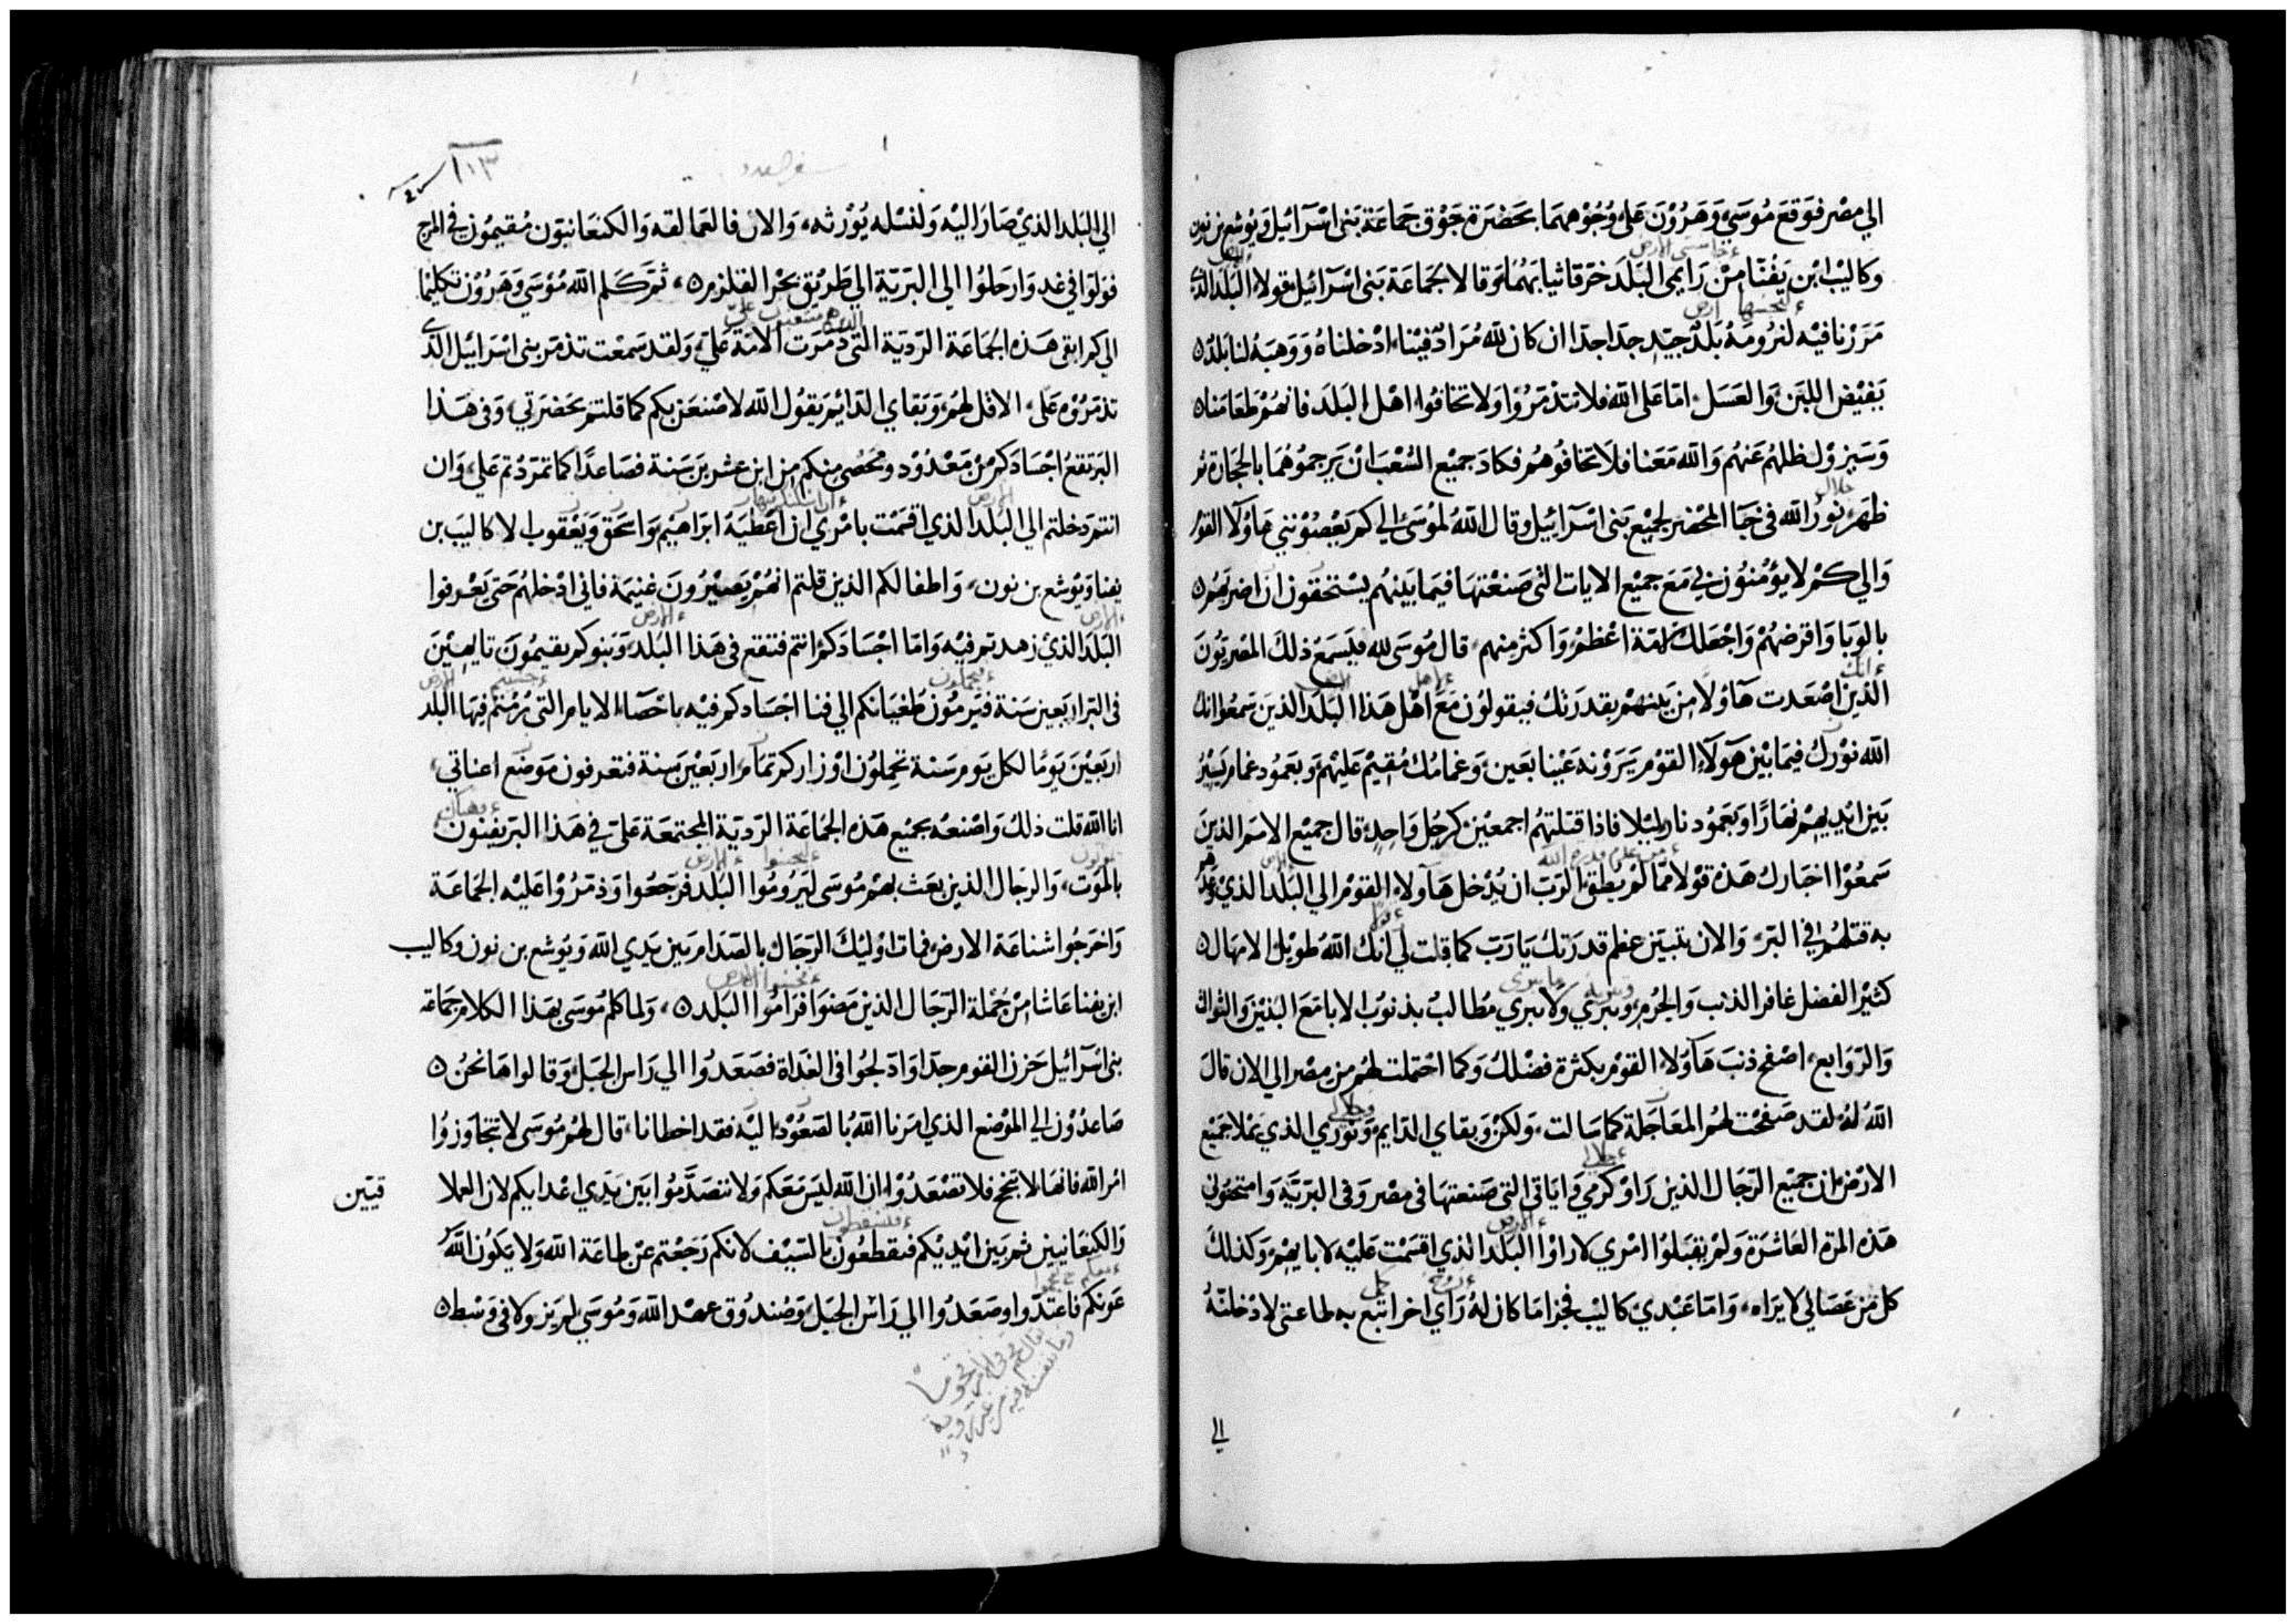 الي مصر فوقع موسي وهرون علي وجوههما بحضرة جوق جماعة بنى اسرآئيل ويوشع بن نون
وكاليب ابن يفنا من رايمى البلد خرقا ثيابهما وقالا لجماعة بنى اسرآئيل قولا البلد الذى
مررنا فيه لنرومه بلد جيد جدا جدا ان كان لله مراد فينا ادخلناه ووهبه لنا بلد
يفيض اللبن والعسل اما على الله فلا تتذمروا ولا تخافوا اهل البلد فانهم طعامنا
وسيزول ظلهم عنهم والله معنا فلا تخافوهم فكاد جميع الشعب ان يرجموهما بالحجارة ثم
ظهر نور الله فى خبا المحضر لجميع بنى اسرآئيل وقال الله لموسى الي كم يعصونني هاولآ القوم
والي كم لا يؤمنون بي مع جميع الايات التى صنعتها فيما بينهم يستحقون ان اضربهم
بالوبا واقرضهم واجعلك امة اعظم واكثر منهم قال موسى لله فيسمع ذلك المصريون
الذين اصعدت هآولا من بينهم بقدرتك فيقولون مع اهل هذا البلد الذين سمعوا انك
الله نورك فيما بين هولآء القوم يرونه عينا بعين وغمامك مقيم عليهم وبعمود غمام يسير
بين ايديهم نهارا وبعمود نار ليلا فاذا قتلتهم اجمعين كرجل واحد قال جميع الامم الذين
سمعوا اخبارك هذه قولا مما لم يطق الرب ان يدخل هآولاء القوم الي البلد الذي وعدهم
به قتلهم في البر والان يتبين عظم قدرتك يارب كما قلت لي انك الله طويل الامهال
كثير الفضل غافر الذنب والجرم ويبري ولا يبري مطالب بذنوب الابا مع البنين والثوالث
والروابع اصفح ذنب هآولاء القوم بكثرة فضلك وكما احتملت لهم من مصر الي الان قال
الله له لقد صفحت لهم المعاجلة كما سالت ولكن وبقاي الدايم ونوري الذي يملا جميع
الارض ان جميع الرجال الذين راو كرمي واياتي التى صنعتها فى مصر وفى البرية وامتحنوني
هذه المرة العاشرة ولم يقبلوا امري لا راوا البلد الذي اقسمت عليه لابايهم وكذلك
كل من عصاني لا يراه واما عبدي كاليب فجزا ما كان له راي اخر اتبع به طاعتى لادخلنه
الي
سفر العدد
١١٣
الي البلد الذي صار اليه ولنسله يورثه والان فالعمالقه والكنعانيون مقيمون في المرج
فولوا في غد وارحلوا الي البرية الي طريق بحر القلزم ثم كلم الله موسى وهرون تكليما
الي كم ابقى هذه الجماعة الردية التى دمرت الامة علي ولقد سمعت تذمر بنى اسرائيل الذى
تذمروه علي الا قل لهم وبقاي الدائم يقول الله لاصنعن بكم كما قلتم بحضرتي وفى هذا
البر تقع اجسادكم من معدود ومحصى منكم من ابن عشرين سنة فصاعدا كما تمردتم علي وان
انتم دخلتم الي البلد الذي اقسمت بامري ان اعطيه ابراهيم واسحق ويعقوب الا كاليب بن
يفنا ويوشع بن نون واطفالكم الذين قلتم انهم يصيرون غنيمة فانى ادخلهم حتى يعرفوا
البلد الذي زهدتم فيه واما اجسادكم انتم فتقع فى هذا البلد وبنوكم يقيمون تايهين
فى البر اربعين سنة فيرمون طغيانكم الي فنا اجسادكم فيه باحصآء الايام التى رمتم فيها البلد
اربعين يوما لكل يوم سنة تحملون اوزاركم تمام اربعين سنة فتعرفون موضع اعناتي
انا الله قلت ذلك واصنعه بجميع هذه الجماعة الردية المجتمعة على في هذا البر يفنون
بالموت والرجال الذين بعث بهم موسى ليروموا البلد فرجعوا وذمروا عليه الجماعة
واخرجوا شناعة الارض فمات اوليك الرجال بالصدام بين يدي الله ويوشع بن نون وكاليب
ابن يفنا عاشا من جملة الرجال الذين مضوا فراموا البلد ولما كلم موسى بهذا الكلام جماعة
بنى اسرآئيل حزن القوم جدا وادلجوا فى الغداة فصعدوا الي راس الجبل وقالوا ها نحن
صاعدون الي الموضع الذي امرنا الله بالصعود اليه فقد اخطانا قال لهم موسى لا تتجاوزوا
امر الله فانها لا تنجح فلا تصعدوا ان الله ليس معكم ولا تتصدموا بين يدي اعدايكم لان العملا
قيين
والكنعانيين ثم بين ايديكم فيقطعون بالسيف لانكم رجعتم عن طاعة الله ولا يكون الله
عونكم فاعتدوا وصعدوا الي راس الجبل وصندوق عهد الله وموسي لم يزولا فى وسط